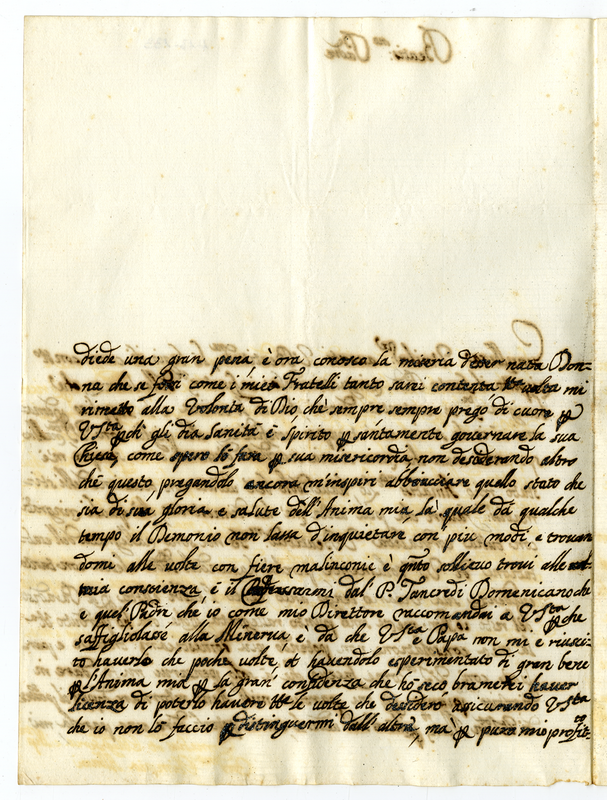 diede una gran pena, è ora conosco la miseria d'esser nata Don=
na che se fossi come i miei Fratelli tanto sarei contenta volta mi
rimetto alla Volontà di Dio che sempre sempre prego di cuore ꝑ
V Stà ꝑchi gli dia Sanità è spirito ꝑ santamente governare la sua
Chiesa, come spero lo farà ꝑ sua misericordia, non desiderando altro
chè questo, pregandolo ancora m'inspiri abbracciare quello stato che
sia di sua gloria, e salute dell'Anima mia, la quale da qualche
tempo il Demonio non lassa d'inquietare con più modi, e trovan
domi alle volte con fiere malinconie è qnto sollievo trovi alle
mia conscienza, è il Confessarmi dal P. Tancredi Domenicano che
è quel Padre che io come mio Direttore raccomandai a V Stà ꝑche
s'affigliolasse alla Minerva, è da che V Stà è Papa non mi è riusci=
to haverlo che poche volte, et havendolo esperimentato di gran bene
ꝑ l'Anima mia, ꝑ la gran confidenza che hò seco, bramerei haver
licenza di poterlo havere tte le volte che desidero, assicurando V Stà
che io non lò faccio ꝑ distinguermi dall'altre, mà ꝑ puro mio profit=